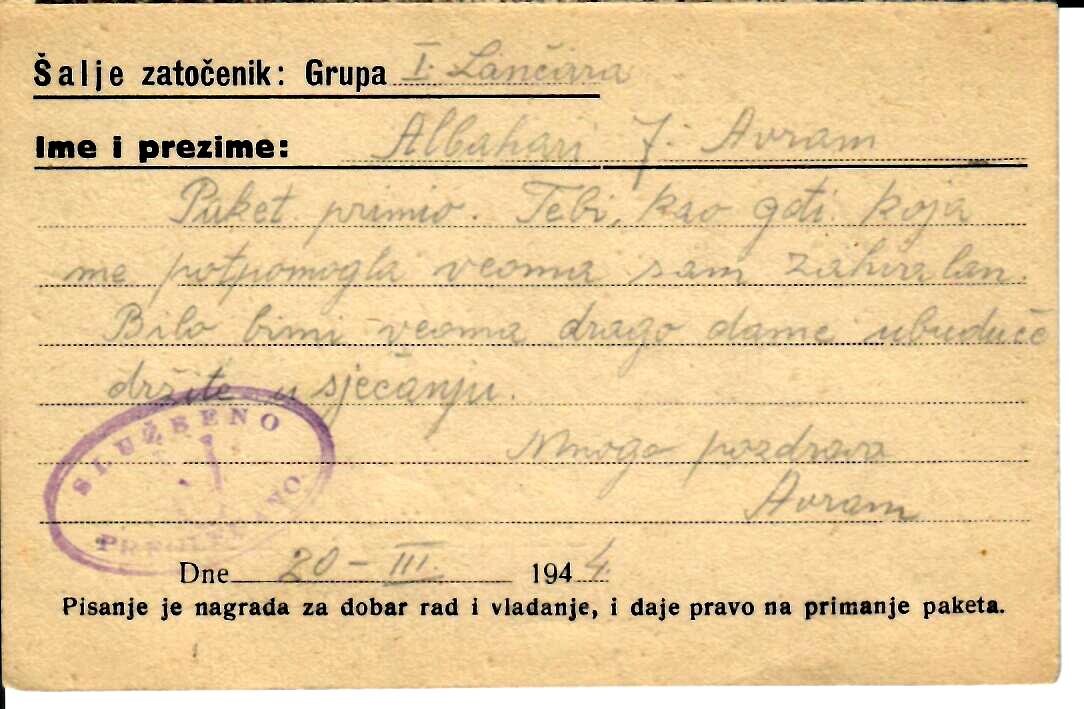 Šalje zatočenik: Grupa I. Lančara
Ime i prezime: Albahari J. Avram
Paket primio. Tebi, kao goti koja
me potpomogla veoma sam zahvalan.
Bilo bimi veoma drago dame ubuduće
držite u sjećanju.
Mnogo pozdrava
Avram
SLUŽBENO
PREGLEDANO
Dne 20 - III 1944.
Pisanje je nagrada za dobar rad i vladanje, i daje pravo na primanje paketa.